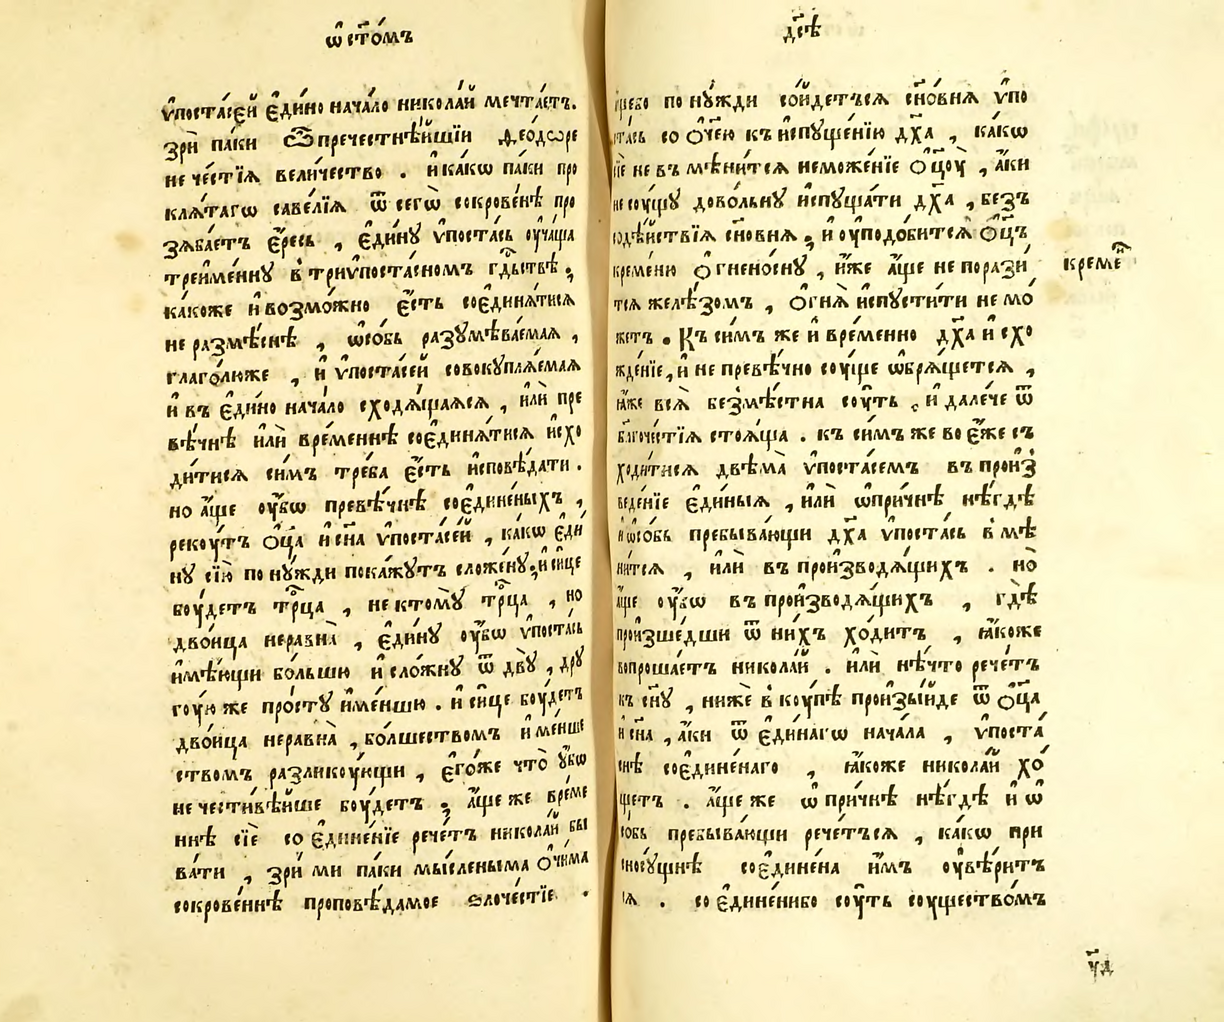 ѡ҆ ст҃о́мъ
ѵ҆поста́сей є҆ди́но нача́ло никола́й мечта́етъ.
зрѝ па́ки ѽ пречестнѣ́йшїи ѳео́дѡре
нечє́стїѧ вели́чество . и҆ ка́кѡ па́ки про
клѧ́тагѡ саве́лїѧ ѿ сегѡ̀ сокрове́нѣ про
зѧба́етъ є҆́ресь , є҆ди́ну ѵ҆поста́сь оу҆ча́ща
треиме́нну в триѵ҆поста́сномъ гд҇ьствѣ̀ ;
ка́коже и҆ возмо́жно є҆́сть соєдинѧ́тисѧ
не размѣ́снѣ , ѡ҆со́бь разумѣва́емаѧ ,
глаго́люже , и҆ ѵ҆поста́сей совокуплѧ́емаѧ
и҆ въ є҆ди́но нача́ло сходѧ́щаѧсѧ , и҆лѝ пре
вѣ́чнѣ и҆лѝ вре́меннѣ соєдинѧ́тисѧ и҆схо
ди́тисѧ си́мъ тре́ба є҆́сть и҆сповѣ́дати .
но а҆́ще оу҆́бѡ превѣ́чнѣ соєдине́ныхъ ,
рекоу́тъ ѻ҆ц҃а и҆ сн҃а ѵ҆поста́сей , ка́кѡ є҆ди
ну сїю̀ по ну́жди пока́жутъ сло́жену ; и҆ си́це
боу́детъ трⷪ҇ца , не ктому̀ трⷪ҇ца , но
дво́ица неравна̀ , є҆ди́ну оу҆́бѡ ѵ҆поста́сь
и҆мѣ́ющи бо́льшю и҆ сло́жну ѿ двꙋ̀ , дру
гоую же про́сту и҆ ме́ншю . и҆ си́це боу́детъ
дво́ица неравна̀ , бо́лшествомъ и҆ ме́нше
ствомъ разликоу́ющи , є҆го́же что̀ оу҆́бѡ
нечести́вѣйше боу́детъ ; а҆́ще же вре́ме
ннѣ сїѐ соєдине́нїе рече́тъ никола́й бы
ва́ти , зри́ ми па́ки мы́сленыма ѻ҆чи́ма
сокрове́ннѣ проповѣ́дамое ѕлоче́стїе .
дс҃ѣ
по ну́жди сои́детъсѧ сн҃о́внѧ ѵ҆по
со ѻ҆ч҃ею къ и҆спуще́нїю дх҃а , ка́кѡ
не въ мѣни́тсѧ неможе́нїе ѻ҆ц҃оу̀ , а҆́ки
не соу́щу дово́льну и҆спуща́ти дх҃а , безъ
содѣ́йствїѧ сн҃о́внѧ ; и҆ оу҆подо́битсѧ ѻ҆ц҃ъ
кре́меню ѻ҆гнено́сну , и҆́же а҆́ще не порази́
тсѧ желѣ́зомъ , ѻ҆гнѧ̀ и҆спусти́ти не мо́
жетъ . Къ си́мъ же и҆ вре́менно дх҃а и҆ схо
жде́нїе , и҆ не превѣ́чно соу́ще ѡ҆брѧ́щетсѧ ,
ꙗ҆́же всѧ̀ безмѣ́стна соу́ть , и҆ дале́че ѿ
благоче́стїѧ стоѧ́ща . къ си́мъ же во є҆́же съ
ходи́тисѧ двѣма̀ ѵ҆поста́семъ въ произ
веде́нїе є҆ди́ныѧ , и҆лѝ ѡ҆при́чнѣ нѣ́гдѣ
и҆ ѡ҆со́бь пребыва́ющи дх҃а ѵ҆поста́сь в мѣ
ни́тсѧ , и҆лѝ въ производѧ́щихъ . но̀
а҆́ще оу҆́бѡ въ производѧ́щихъ , гдѣ̀
произше́дши ѿ ни́хъ хо́дитъ , ꙗ҆́коже
вопроша́етъ никола́й . и҆лѝ нѣ́что рече́тъ
къ сн҃у , нижѐ в коу́пѣ произы́йде ѿ ѻ҆ц҃а
и҆ сн҃а , а҆́ки ѿ є҆ди́нагѡ нача́ла , ѵ҆поста́
снѣ соєдине́наго , ꙗ҆́коже никола́й хо́
щетъ . а҆́ще же ѡ҆ при́чнѣ нѣ́гдѣ и҆ ѡ҆
собь пребыва́ющи рече́тъсѧ , ка́кѡ при
сносу́щнѣ соєдине́на и҆́мъ оу҆вѣ́ритъ
сѧ . соєдине́ни бо соу́ть соу́щество́мъ
кремє́нⷩ
ѵ҃д